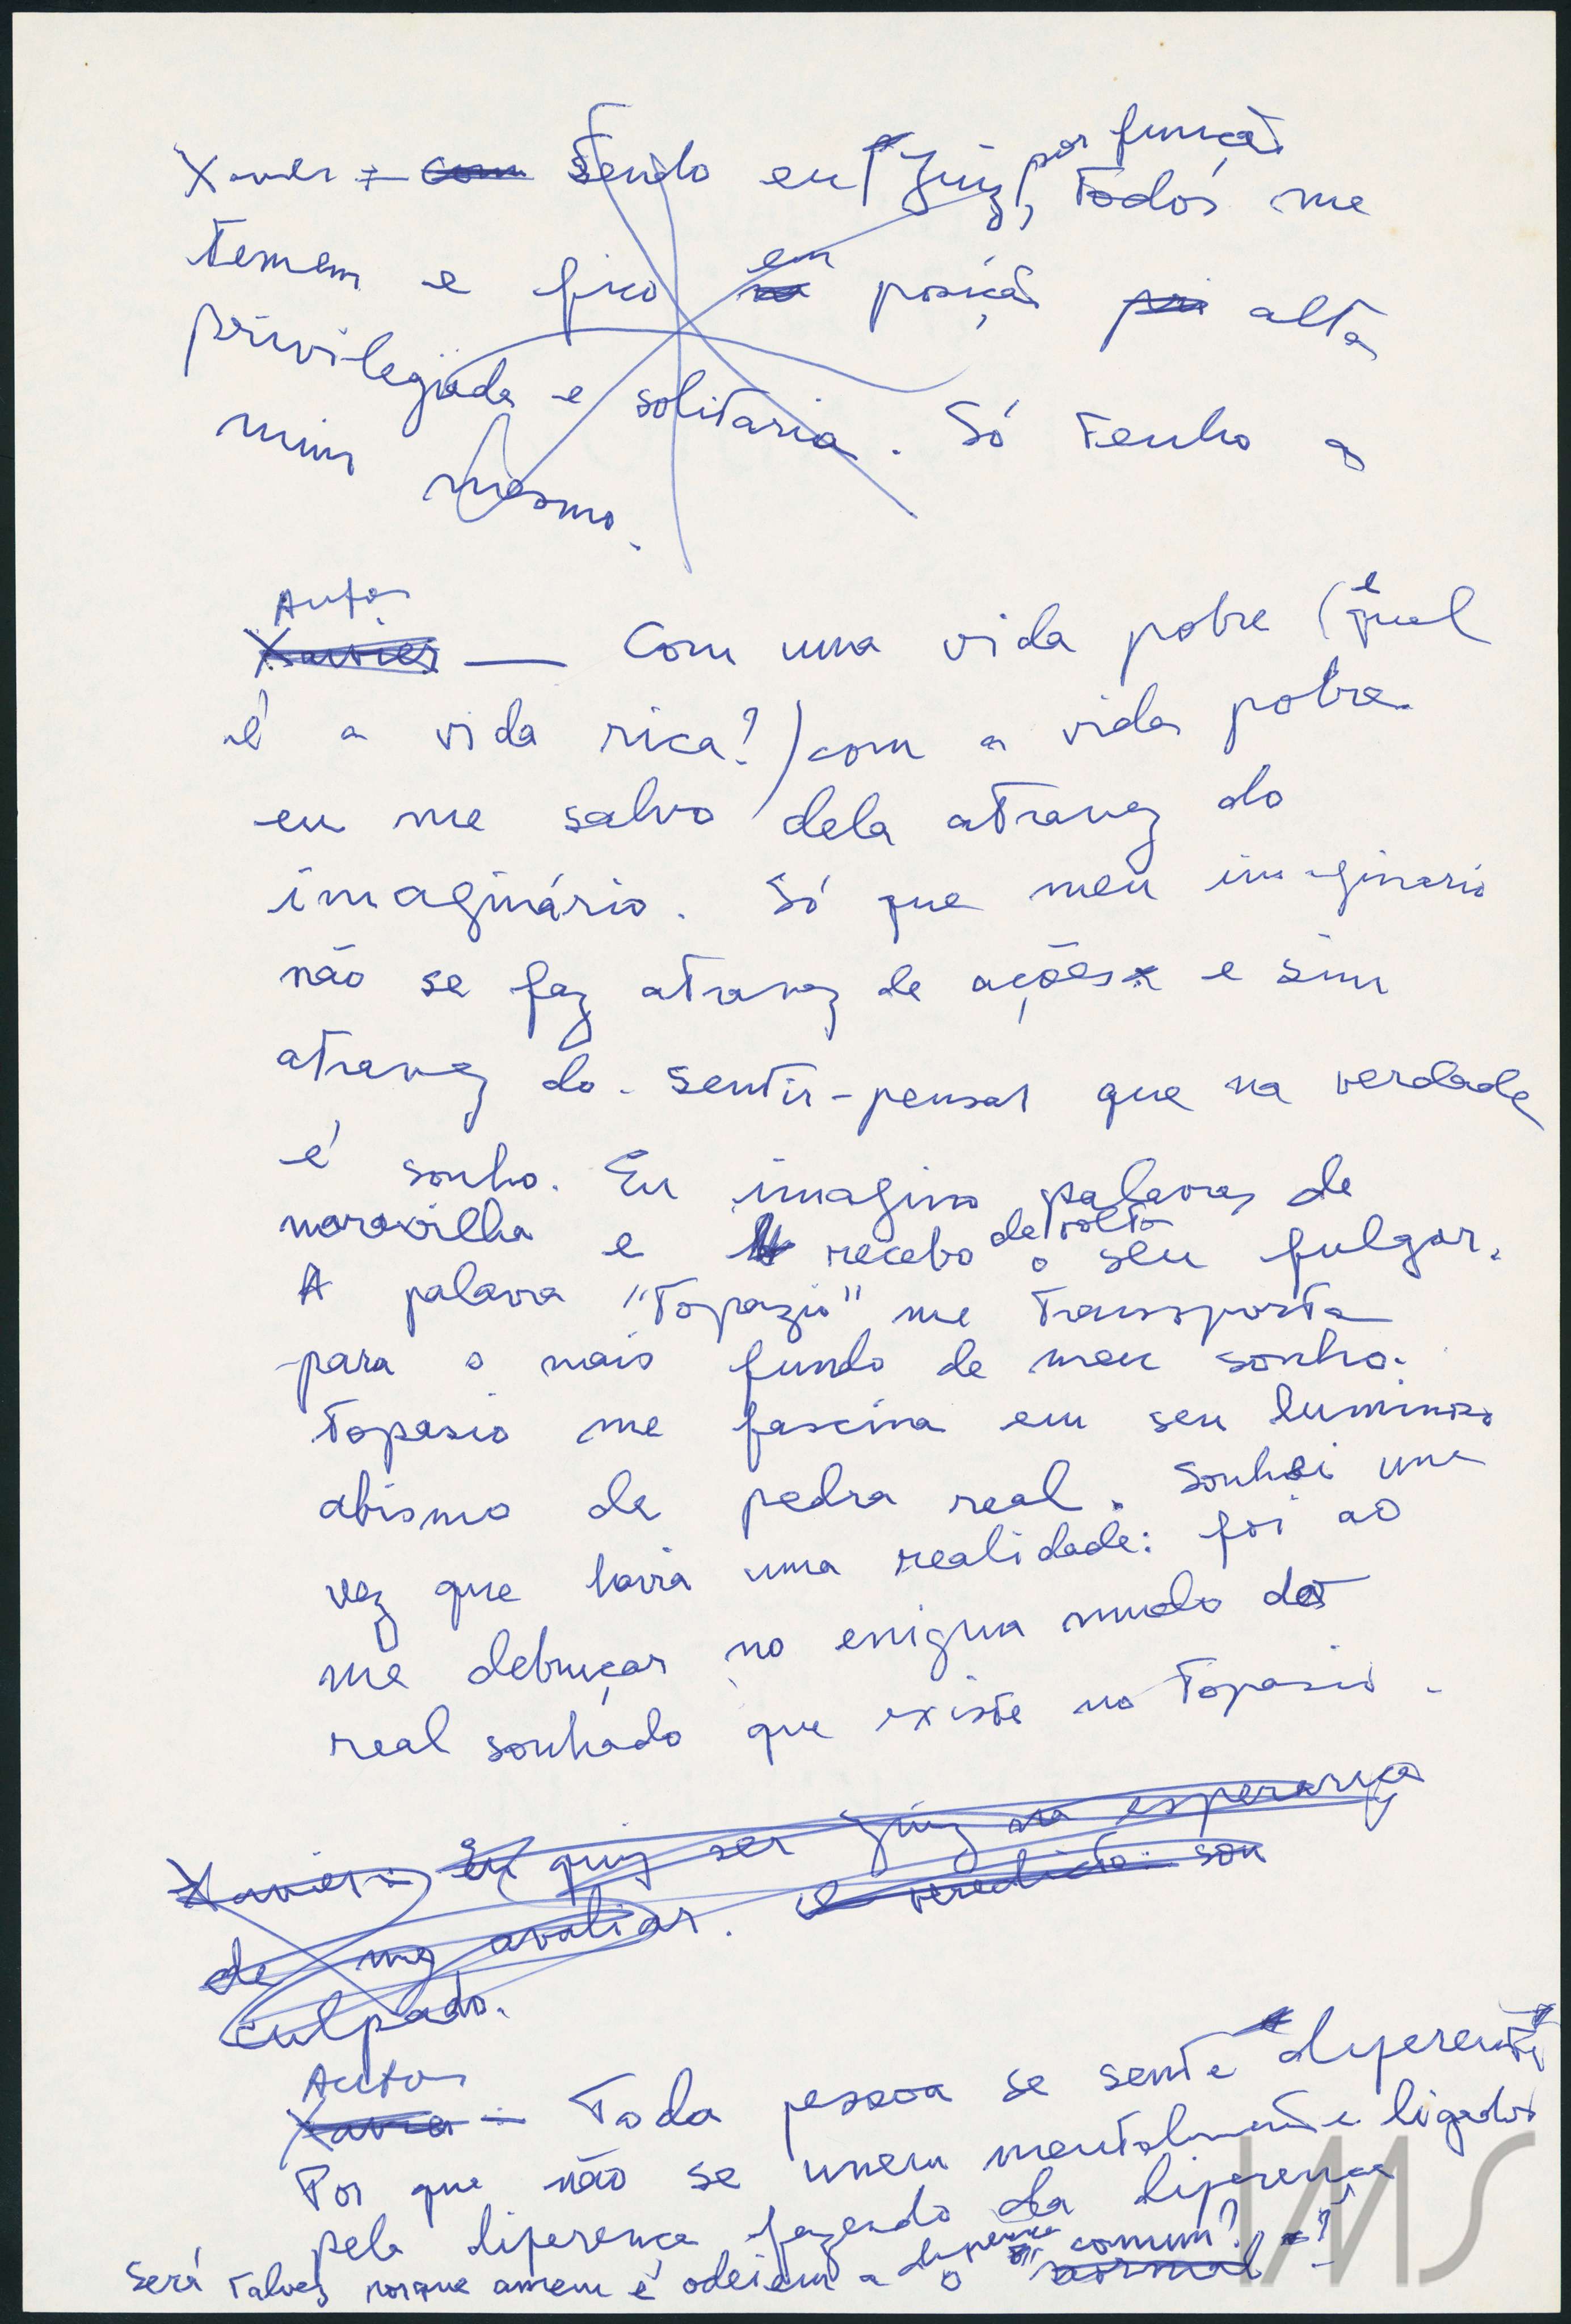 Xavier – com Sendo eu Juiz por função, todos me
temem e fico na em posição alta
privilegiada e solitaria. Só tenho a
mim mesmo.
Autor
Xavier — Com uma vida pobre (e qual
é a vida rica?) com a vida pobre
eu me salvo dela atravez do
imaginário. Só que meu imaginario
não se faz atravez de ações e sim
atravez do sentir-pensar que na verdade
é sonho. Eu imagino palavras de
maravilha e recebo de volta o seu fulgor.
A palavra "Topazio" me transporta
para o mais fundo de meu sonho.
Topasio me fascina em seu luminoso
abismo de pedra real. Sonhei uma
vez que havia uma realidade: foi ao
me debruçar no enigma mudo do
real sonhado que existe no Topasio.
Xavier: Eu quiz ser Juiz na esperança
de me avaliar. O veredicto: sou
culpado.
Autor
Xavier – Toda pessoa se sente diferente
Por que não se unem mentalmente ligados
pela diferença fazendo da diferença
o comum? normal?
Será talvez porque amem e odeiem a diferença
IMS